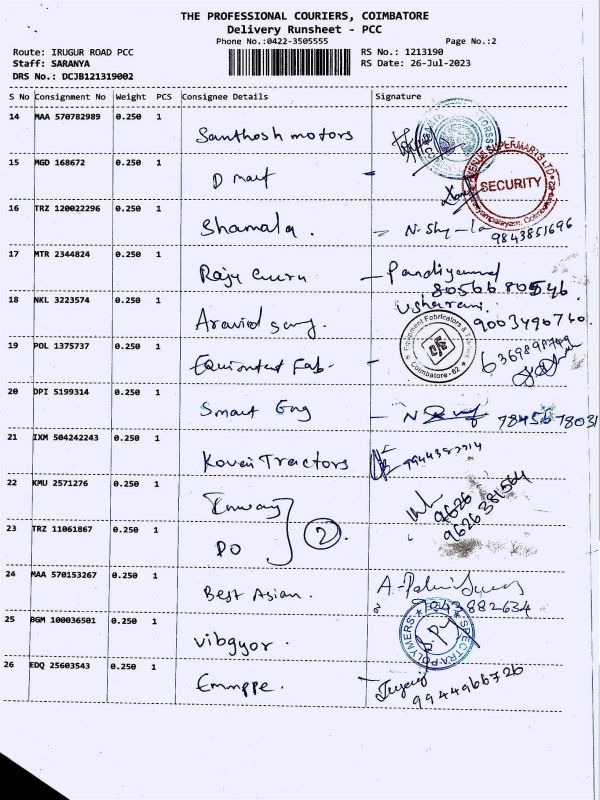 THE PROFESSIONAL COURIERS, COIMBATORE
Delivery Runsheet - PCC
Phone No.:0422-3505555 Page No.:2
Route: IRUGUR ROAD PCC RS No.: 1213190
Staff: SARANYA RS Date: 26-Jul-2023
DRS No.: DCJB121319002
S No Consignment No Weight PCS Consignee Details Signature
14 MAA 570782989 0.250 1 Santhosh motors
15 MGD 168672 0.250 1 D mart
SECURITY
16 TRZ 120022296 0.250 1 Shamala. N. Shy-la
9843851696
17 MTR 2344824 0.250 1 Raju
80566 80546
18 NKL 3223574 0.250 1 Aravind Usharani.
9003490740
19 POL 1375737 0.250 1 Fab-
Equipment Fabricators
Coimbatore-62
20 DPI 5199314 0.250 1 Smart Eng 7845678031
21 IXM 504242243 0.250 1 Kovai Tractors
22 KMU 2571276 0.250 1
9626
9626381564
23 TRZ 11061867 0.250 1 DO 2
24 MAA 570153267 0.250 1 Best Asian.
9843882634
25 BGM 100036501 0.250 1 vibgyor.
SPECTRA POLYMERS
26 EDQ 25603543 0.250 1 Emmppe.
9944966726